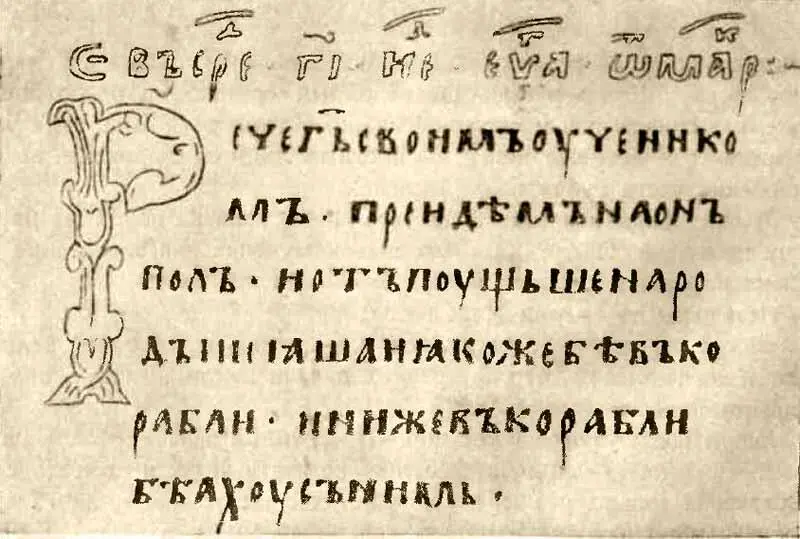 Є ВЪ СРⷣЕ · Г҃І · НⷣЕ · ЕѴⷢА · ѾМАⷬР :~
РЕЧЕГ҃ЬСВОИМЪОУЧЕНИКО
МЪ · ПРЕИДѢМЪНАОНЪ
ПОЛЪ · ИОТЪПОУЩЬШЕНАРО
ДЪІИꙖШАИꙖКОЖЕБѢВЪКО
РАБЛИ · ИИНИЖЕВЪКОРАБЛИ
БѢАХОУСЪНИМЬ ·